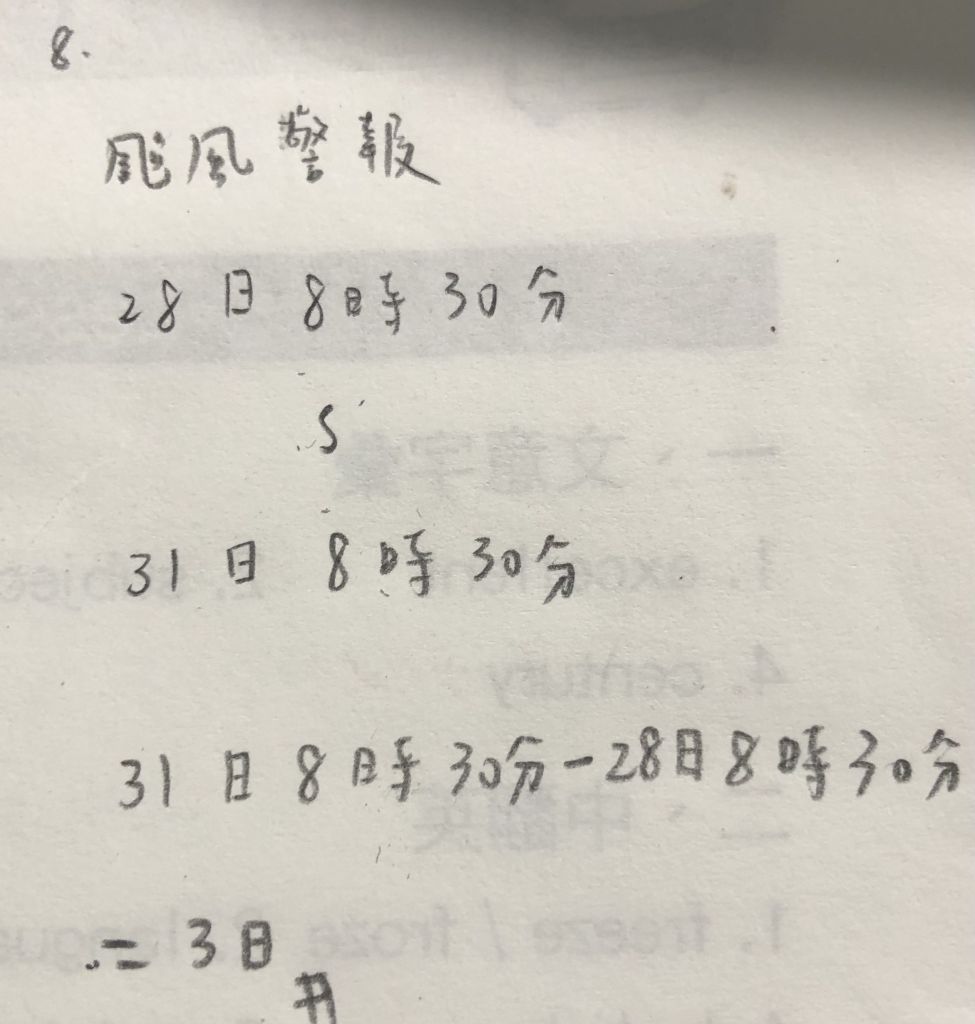 8.
颱風警報
28日8時30分
S
31日8時30分
31日8時30分-28日8時30分
=3日